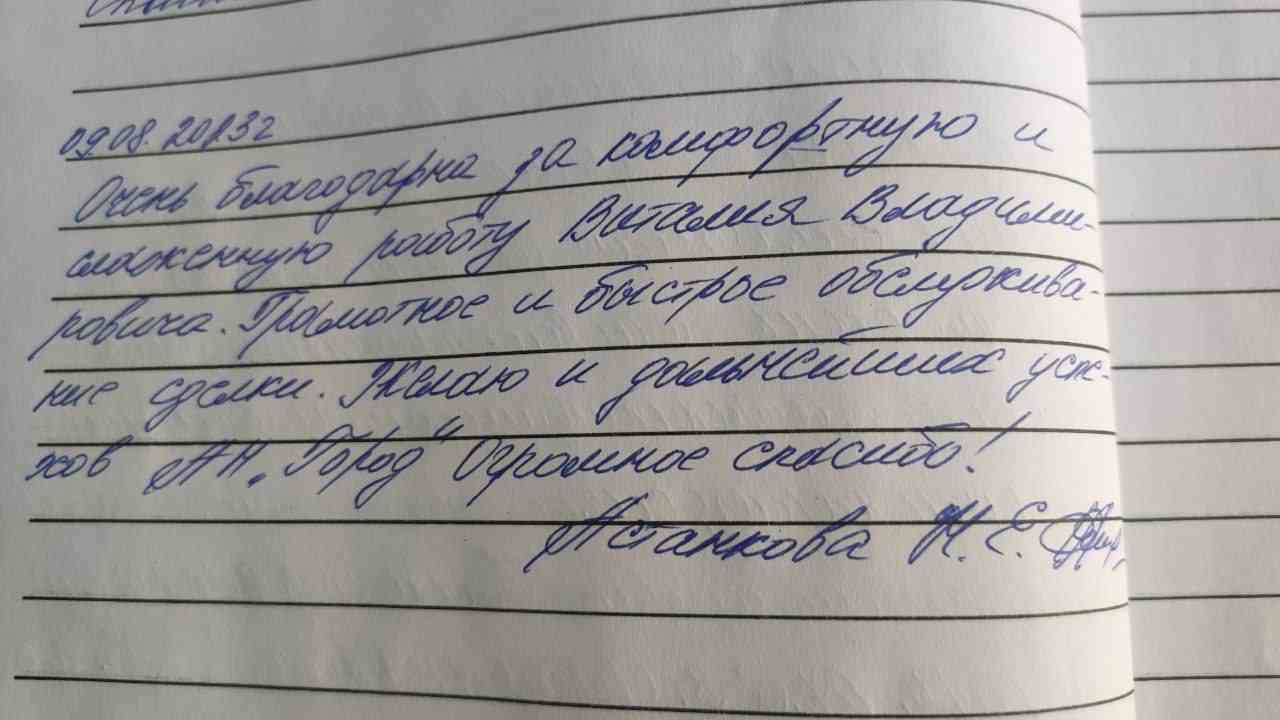 09.08.2023г
Очень благодарна за комфортную и
слаженную работу Виталия Владими-
ровича. Грамотное и быстрое обслужива-
ние сделки. Желаю и дальнейших успе-
хов АН „Город“ Огромное спасибо!
Астанкова Н. Е.